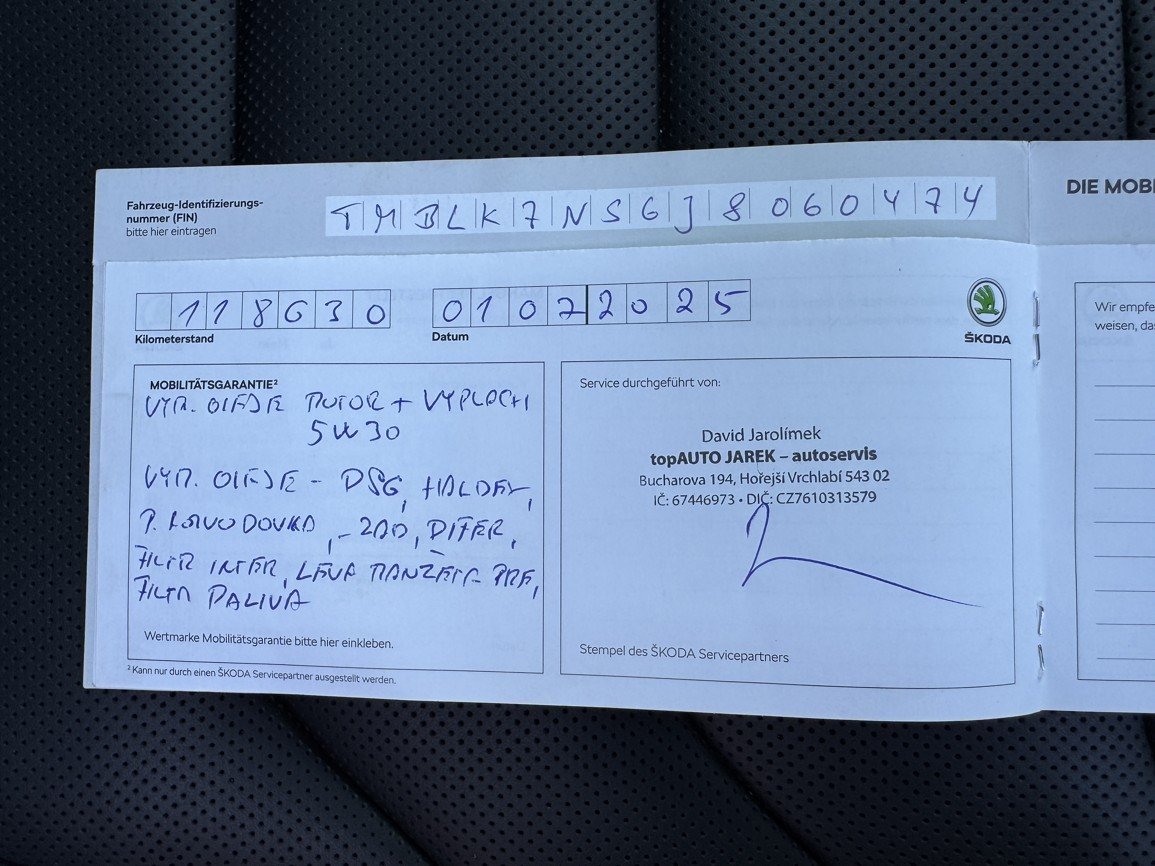 Fahrzeug-Identifizierungs-
nummer (FIN)
bitte hier eintragen
TMBLK7NS6J8060474
DIE MOBI
118630
Kilometerstand
01072025
Datum
ŠKODA
Wir empfe
weisen, da
MOBILITÄTSGARANTIE²
VÝM. OLEJE MOTOR + VÝPLACH
5W30
VÝM. OLEJE - DSG, HALDEX,
P. ROZVODOVKA, - ZAD, DIFER,
FILTR INTER, LEVÁ MANŽETA PŘE,
FILTR PALIVA
Wertmarke Mobilitätsgarantie bitte hier einkleben.
² Kann nur durch einen ŠKODA Servicepartner ausgestellt werden.
Service durchgeführt von:
David Jarolímek
topAUTO JAREK – autoservis
Bucharova 194, Hořejší Vrchlabí 543 02
IČ: 67446973 • DIČ: CZ7610313579
Stempel des ŠKODA Servicepartners